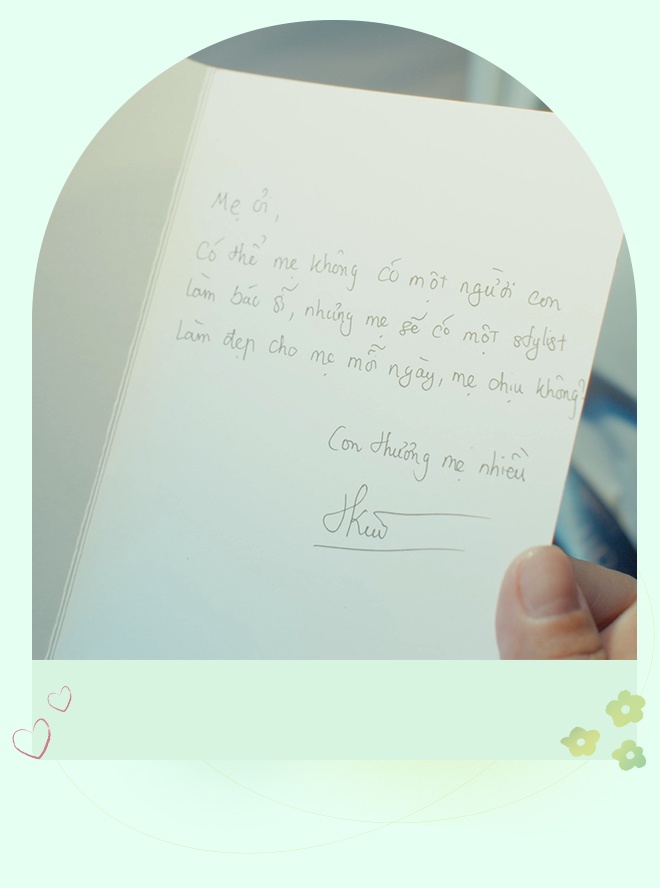 Mẹ ơi,
Có thể mẹ không có một người con
làm bác sĩ, nhưng mẹ sẽ có một stylist
làm đẹp cho mẹ mỗi ngày, mẹ chịu không?
Con thương mẹ nhiều